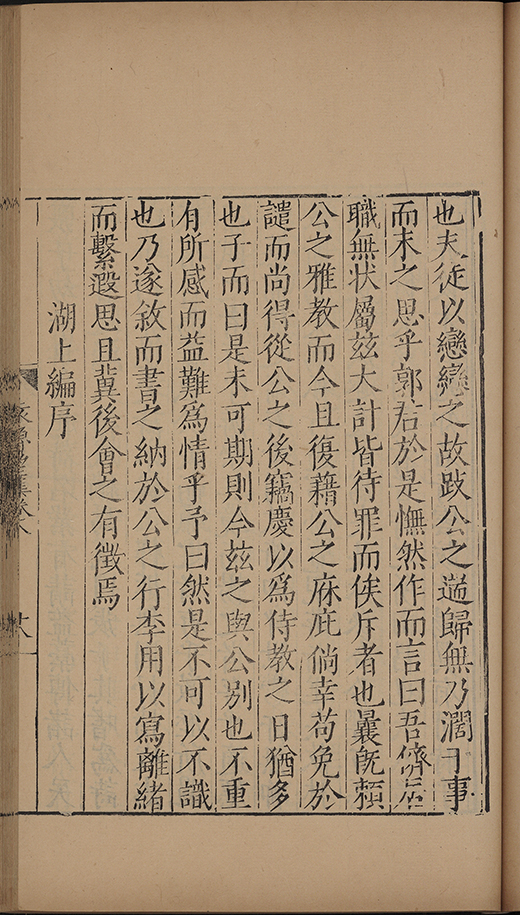 也夫徒以戀戀之故跂公之遄歸無乃濶于事
而未之思乎郭君於是憮然作而言曰吾儕居
職無状屬兹大計皆待罪而俟斥者也曩既頼
公之雅教而今且復藉公之庥庇倘幸苟免於
譴而尚得從公之後竊慶以爲侍教之日猶多
也子而曰是未可期則今兹之與公别也不重
有所感而益難爲情乎予曰然是不可以不識
也乃遂敘而書之納於公之行李用以寫離緒
而繫遐思且冀後會之有徵焉
湖上編序